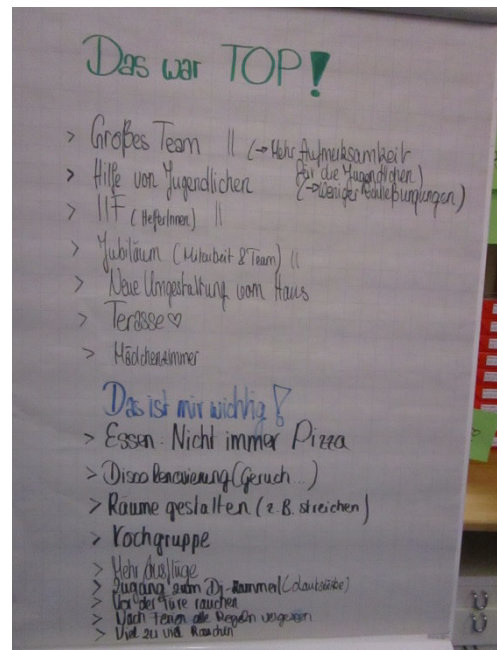 Das war TOP!
> Großes Team || (→ Mehr Aufmerksamkeit
für die Jugendlichen)
> Hilfe von Jugendlichen (→ Weniger Schließungungen)
> IIF (HelferInnen) ||
> Jubiläum (Mitarbeit & Team) ||
> Neue Umgestaltung vom Haus
> Terasse ♡
> Mädchenzimmer
Das ist mir wichtig!
> Essen: Nicht immer Pizza
> Disco Renovierung (Geruch...)
> Räume gestalten (z.B. streichen)
> Kochgruppe
> Mehr Ausflüge
> Zugang zum Dj-Kammerl (Lautstärke)
> Vor der Türe rauchen
> Nach Ferien alle Regeln vergessen
> Viel zu viel Rauchen